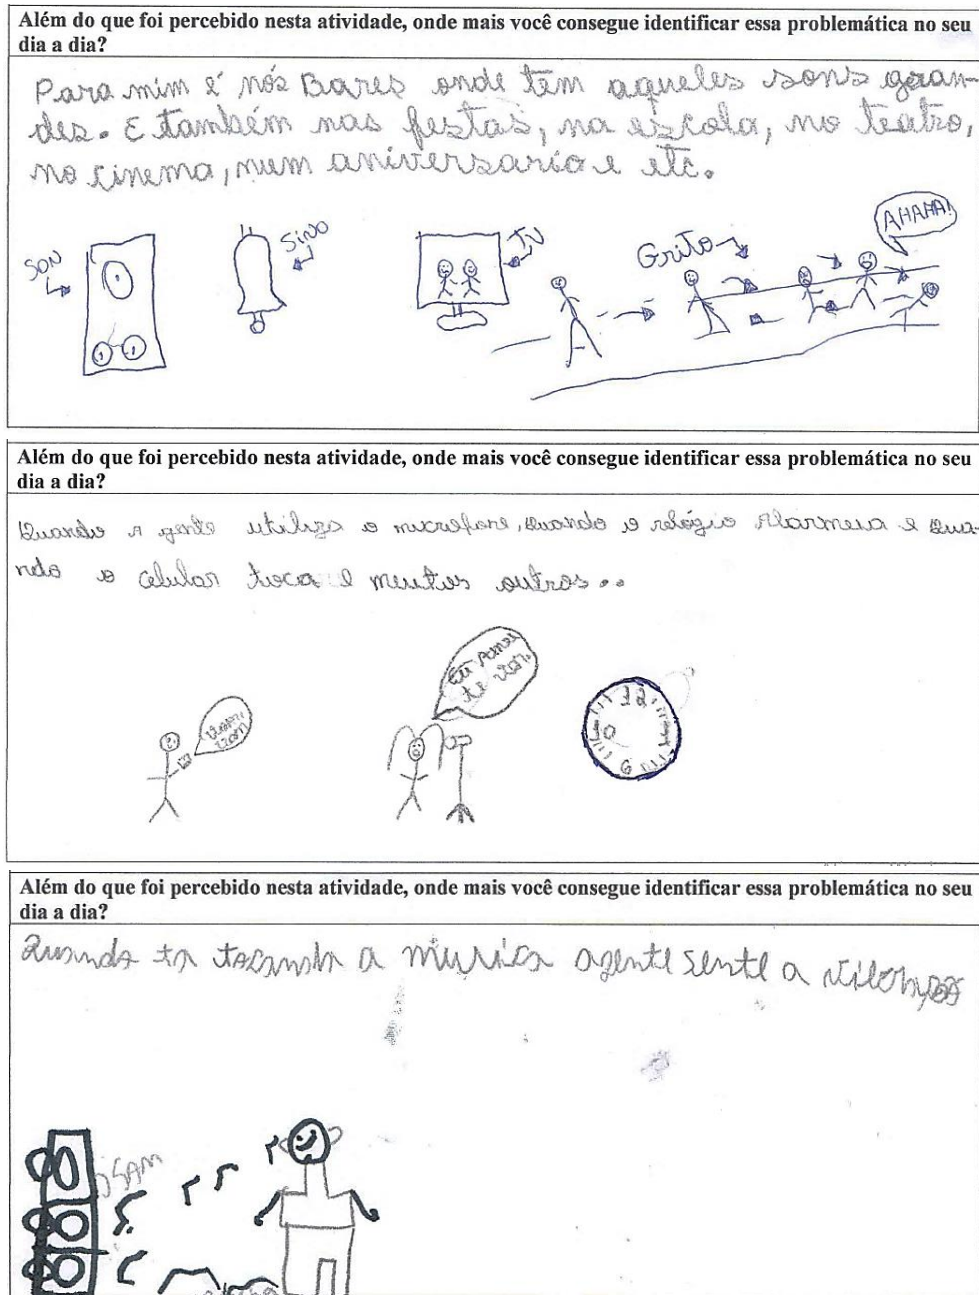 Além do que foi percebido nesta atividade, onde mais você consegue identificar essa problemática no seu
dia a dia?
Para mim é nós Bares onde tem aqueles sons gran-
des. E também nas festas, na escola, no teatro,
no cinema, num aniversario e etc.
SON
SINO
TV
Grito
AHAHA!
Além do que foi percebido nesta atividade, onde mais você consegue identificar essa problemática no seu
dia a dia?
Quando a gente utiliza o microfone, quando o relógio Alarmeia e Qua-
ndo o celular toca e muitos outros..
Eu Amei
te
12
10
6
Além do que foi percebido nesta atividade, onde mais você consegue identificar essa problemática no seu
dia a dia?
Quando ta tocando a musica agente sente a
SAM